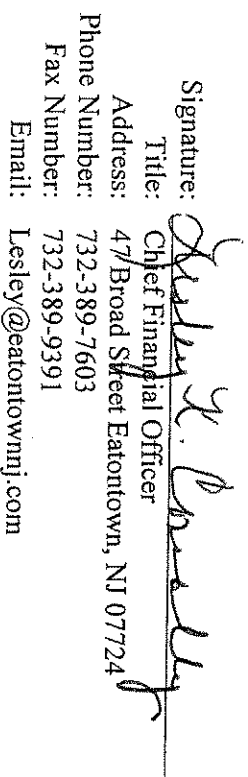 Signature: Lesley
Title: Chief Financial Officer
Address: 47 Broad Street Eatontown, NJ 07724
Phone Number: 732-389-7603
Fax Number: 732-389-9391
Email: Lesley@eatontownnj.com